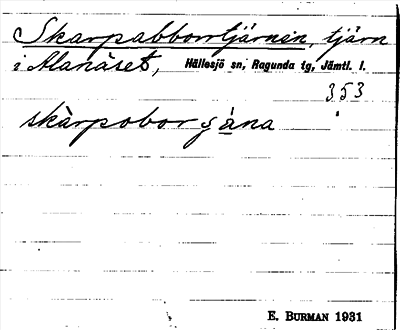 Skarpabborrtjärnen, tjärn
i Alanäset, Hällesjö sn, Ragunda tg, Jämtl. l.
353
skàrpobor ʂäna
E. BURMAN 1931